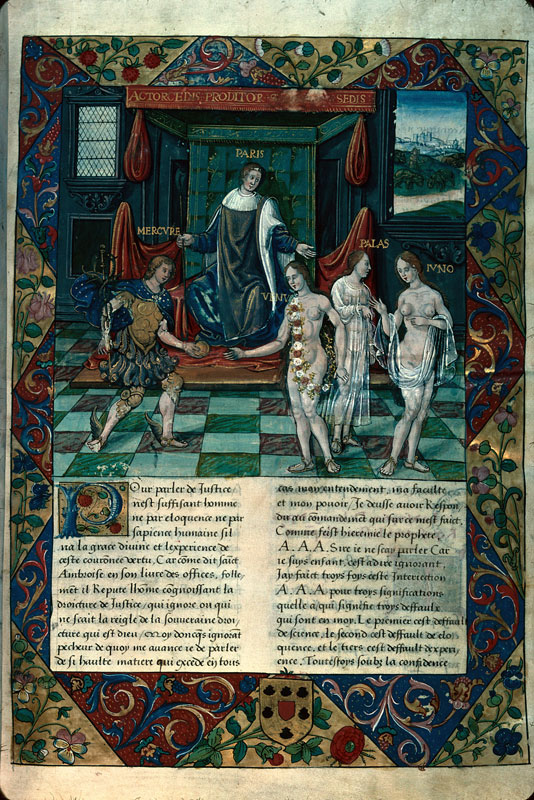 ACTOR CEDIS PRODITOR SEDIS
PARIS
MERCVRE
PALAS
VENVS
IVNO
Pour parler de Justice
nest suffisant homme
ne par eloquence ne par
sapience humaine sil
na la grace divine et lexperience de
ceste couronee vertu, Car cõme dit saict
Ambroise en son livre des offices, folle
mẽt il Repute lhõe cognoissant la
droicture de Justice, qui ignore ou qui
ne scait la reigle de la souveraine droi
cture qui est dieu, Moy doncqs ignorãt
pecheur de quoy me avance ie de parler
de si haulte matiere qui excede en tous
cas mon entendement, ma faculte
et mon povoir, Je deusse avoir Respon
du au cõmandemẽt qui sur ce mest faict,
Comme fist hieremie le prophete
A. A. A. Sire ie ne scay parler Car
ie suys enfant, cest a dire ignorant,
Jay faict troys foys ceste Interiection
A. A. A. pour troys significations
quelle a, qui signifie troys deffaulx
qui sont en moy. Le premier cest deffault
de science, le second cest deffault de elo
quence, et le tiers cest deffault de xperi
ence. Toutesfoys soubz la confidence